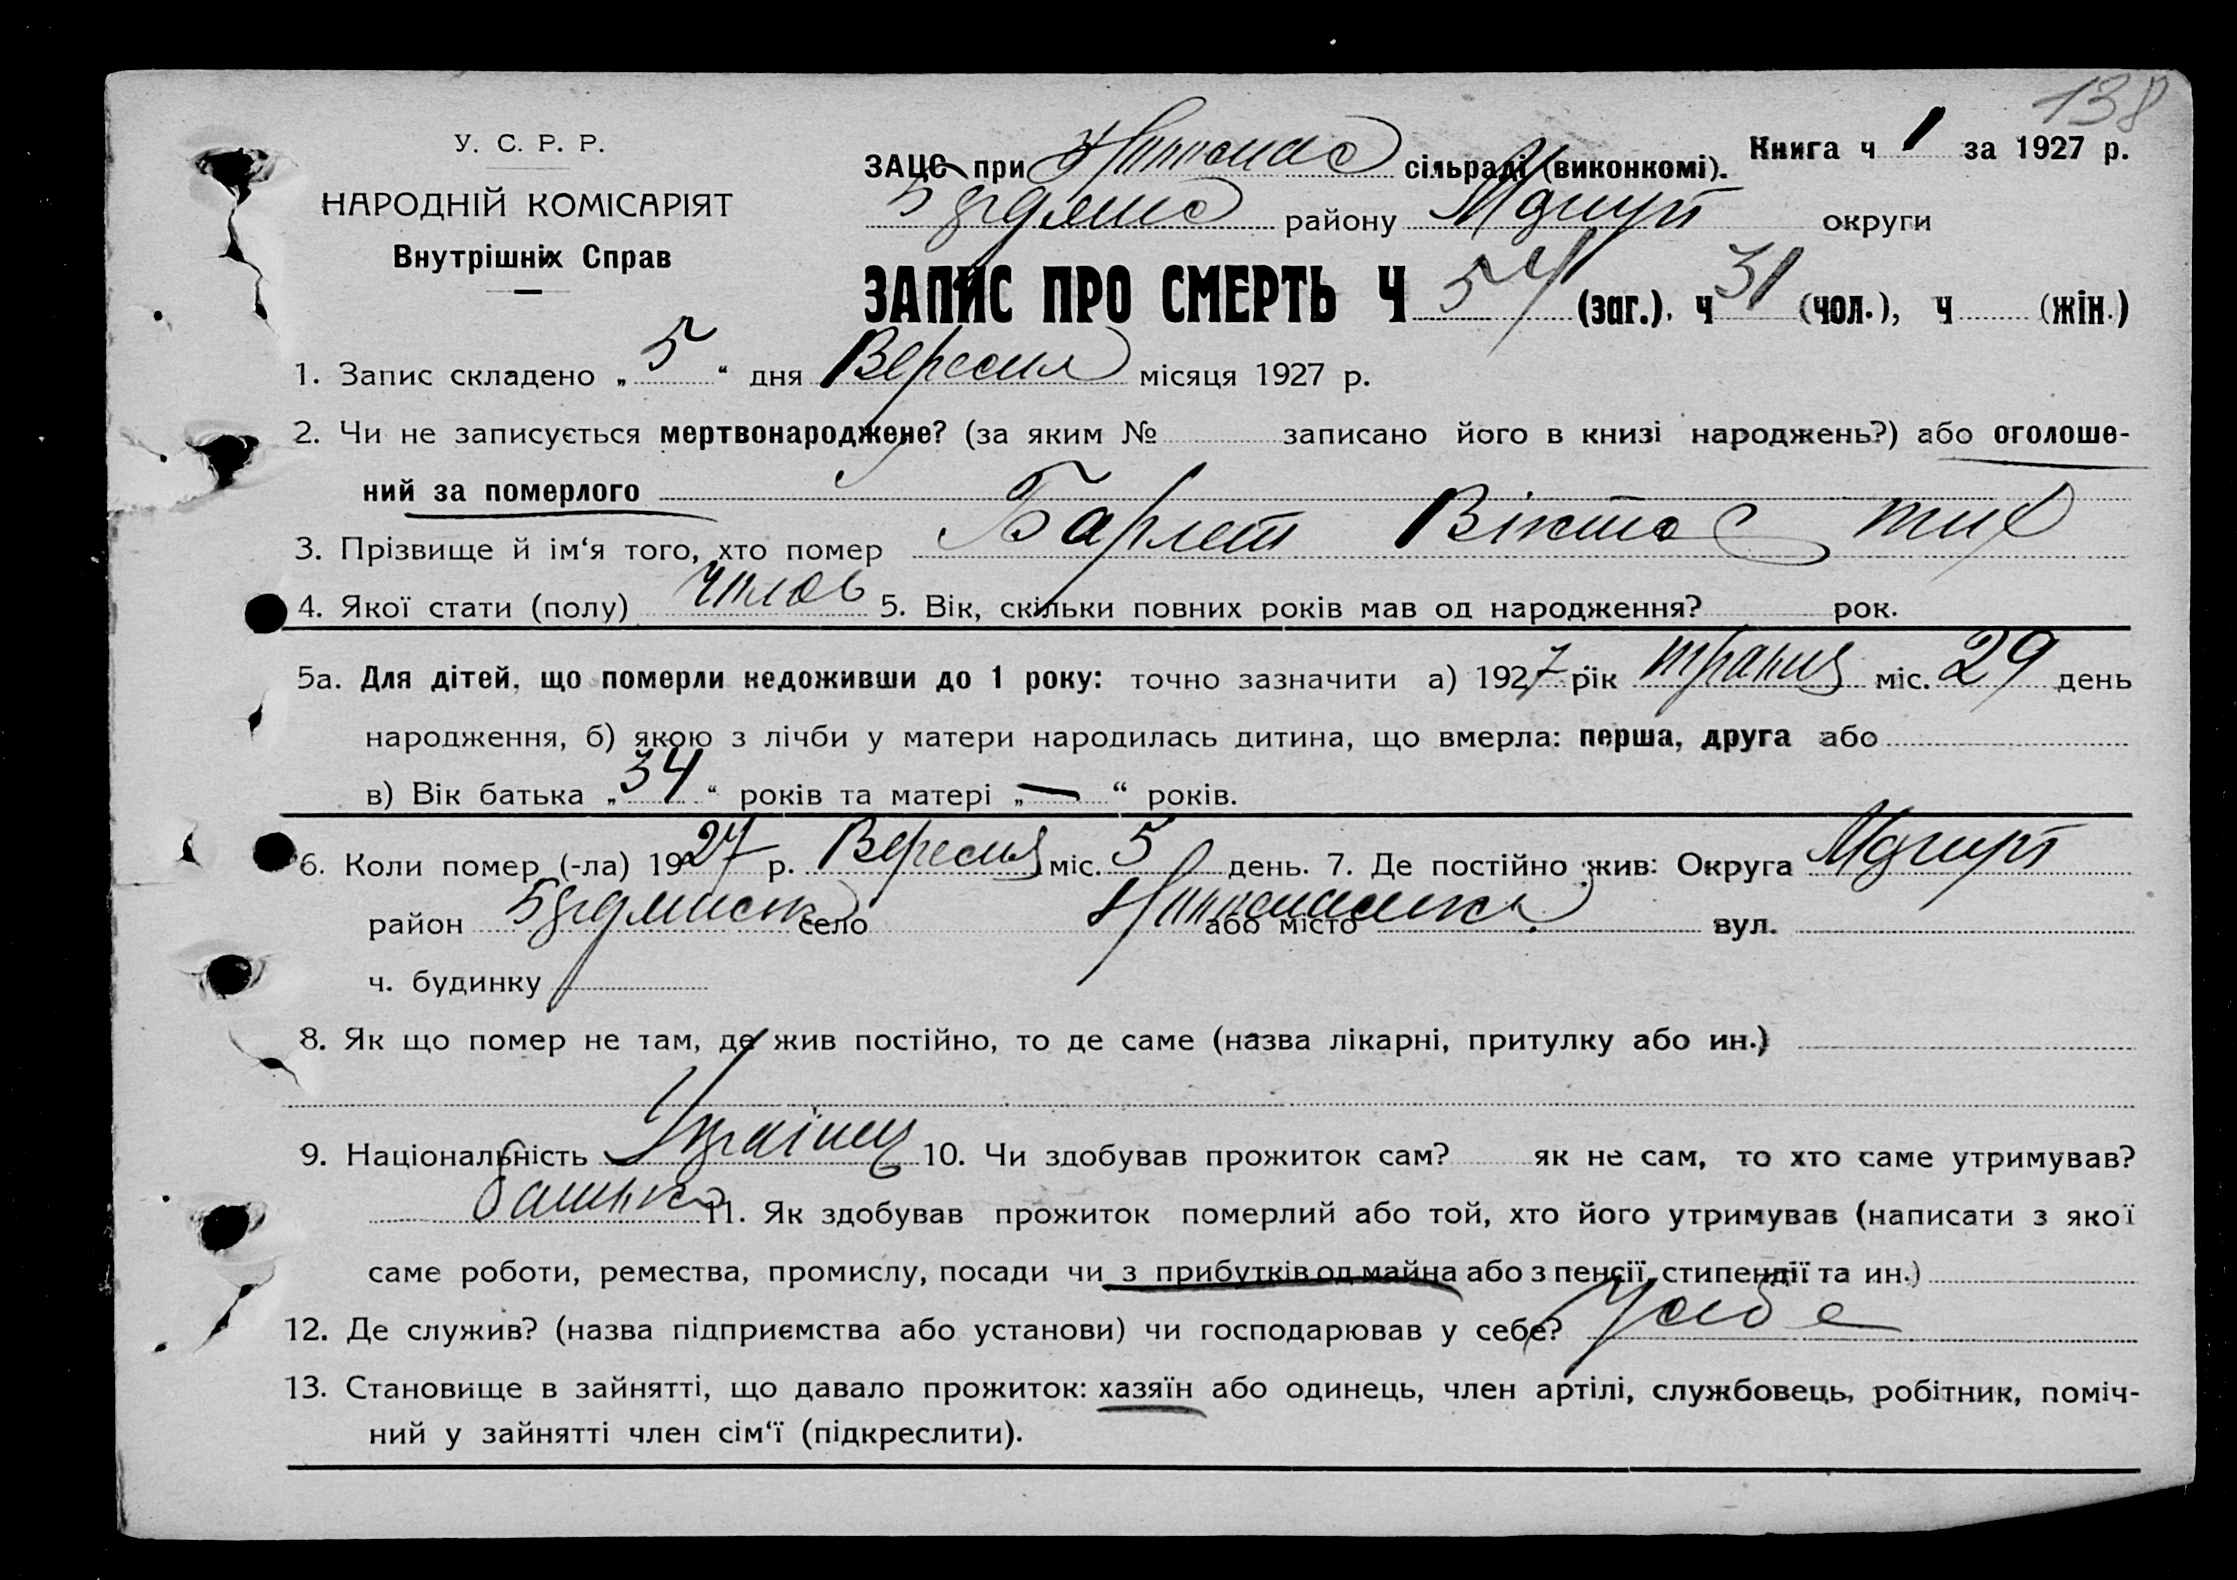 138
У. С. Р. Р.
НАРОДНІЙ КОМІСАРІЯТ
Внутрішніх Справ
ЗАЦС при сільраді (виконкомі). Книга ч 1 за 1927 р.
району округи
ЗАПИС ПРО СМЕРТЬ Ч 54 (заг.), ч 31 (чол.), ч (жін.)
1. Запис складено „ 5 “ дня Вересня місяця 1927 р.
2. Чи не записується мертвонароджене? (за яким № записано його в книзі народжень?) або оголоше-
ний за померлого
3. Прізвище й ім‘я того, хто помер
4. Якої стати (полу) 5. Вік, скільки повних років мав од народження? рок.
5а. Для дітей, що померли недоживши до 1 року: точно зазначити а) 1927 рік травня міс. 29 день
народження, б) якою з лічби у матери народилась дитина, що вмерла: перша, друга або
в) Вік батька „ 34 “ років та матері „ — “ років.
6. Коли помер (-ла) 1927 р. Вересня міс. 5 день. 7. Де постійно жив: Округа
район село або місто вул.
ч. будинку
8. Як що помер не там, де жив постійно, то де саме (назва лікарні, притулку або ин.)
9. Національність Українец 10. Чи здобував прожиток сам? як не сам, то хто саме утримував?
батько 11. Як здобував прожиток померлий або той, хто його утримував (написати з якої
саме роботи, ремества, промислу, посади чи з прибутків од майна або з пенсії, стипендії та ин.)
12. Де служив? (назва підприємства або установи) чи господарював у себе? У себе
13. Становище в зайнятті, що давало прожиток: хазяїн або одинець, член артілі, службовець, робітник, поміч-
ний у зайнятті член сім‘ї (підкреслити).